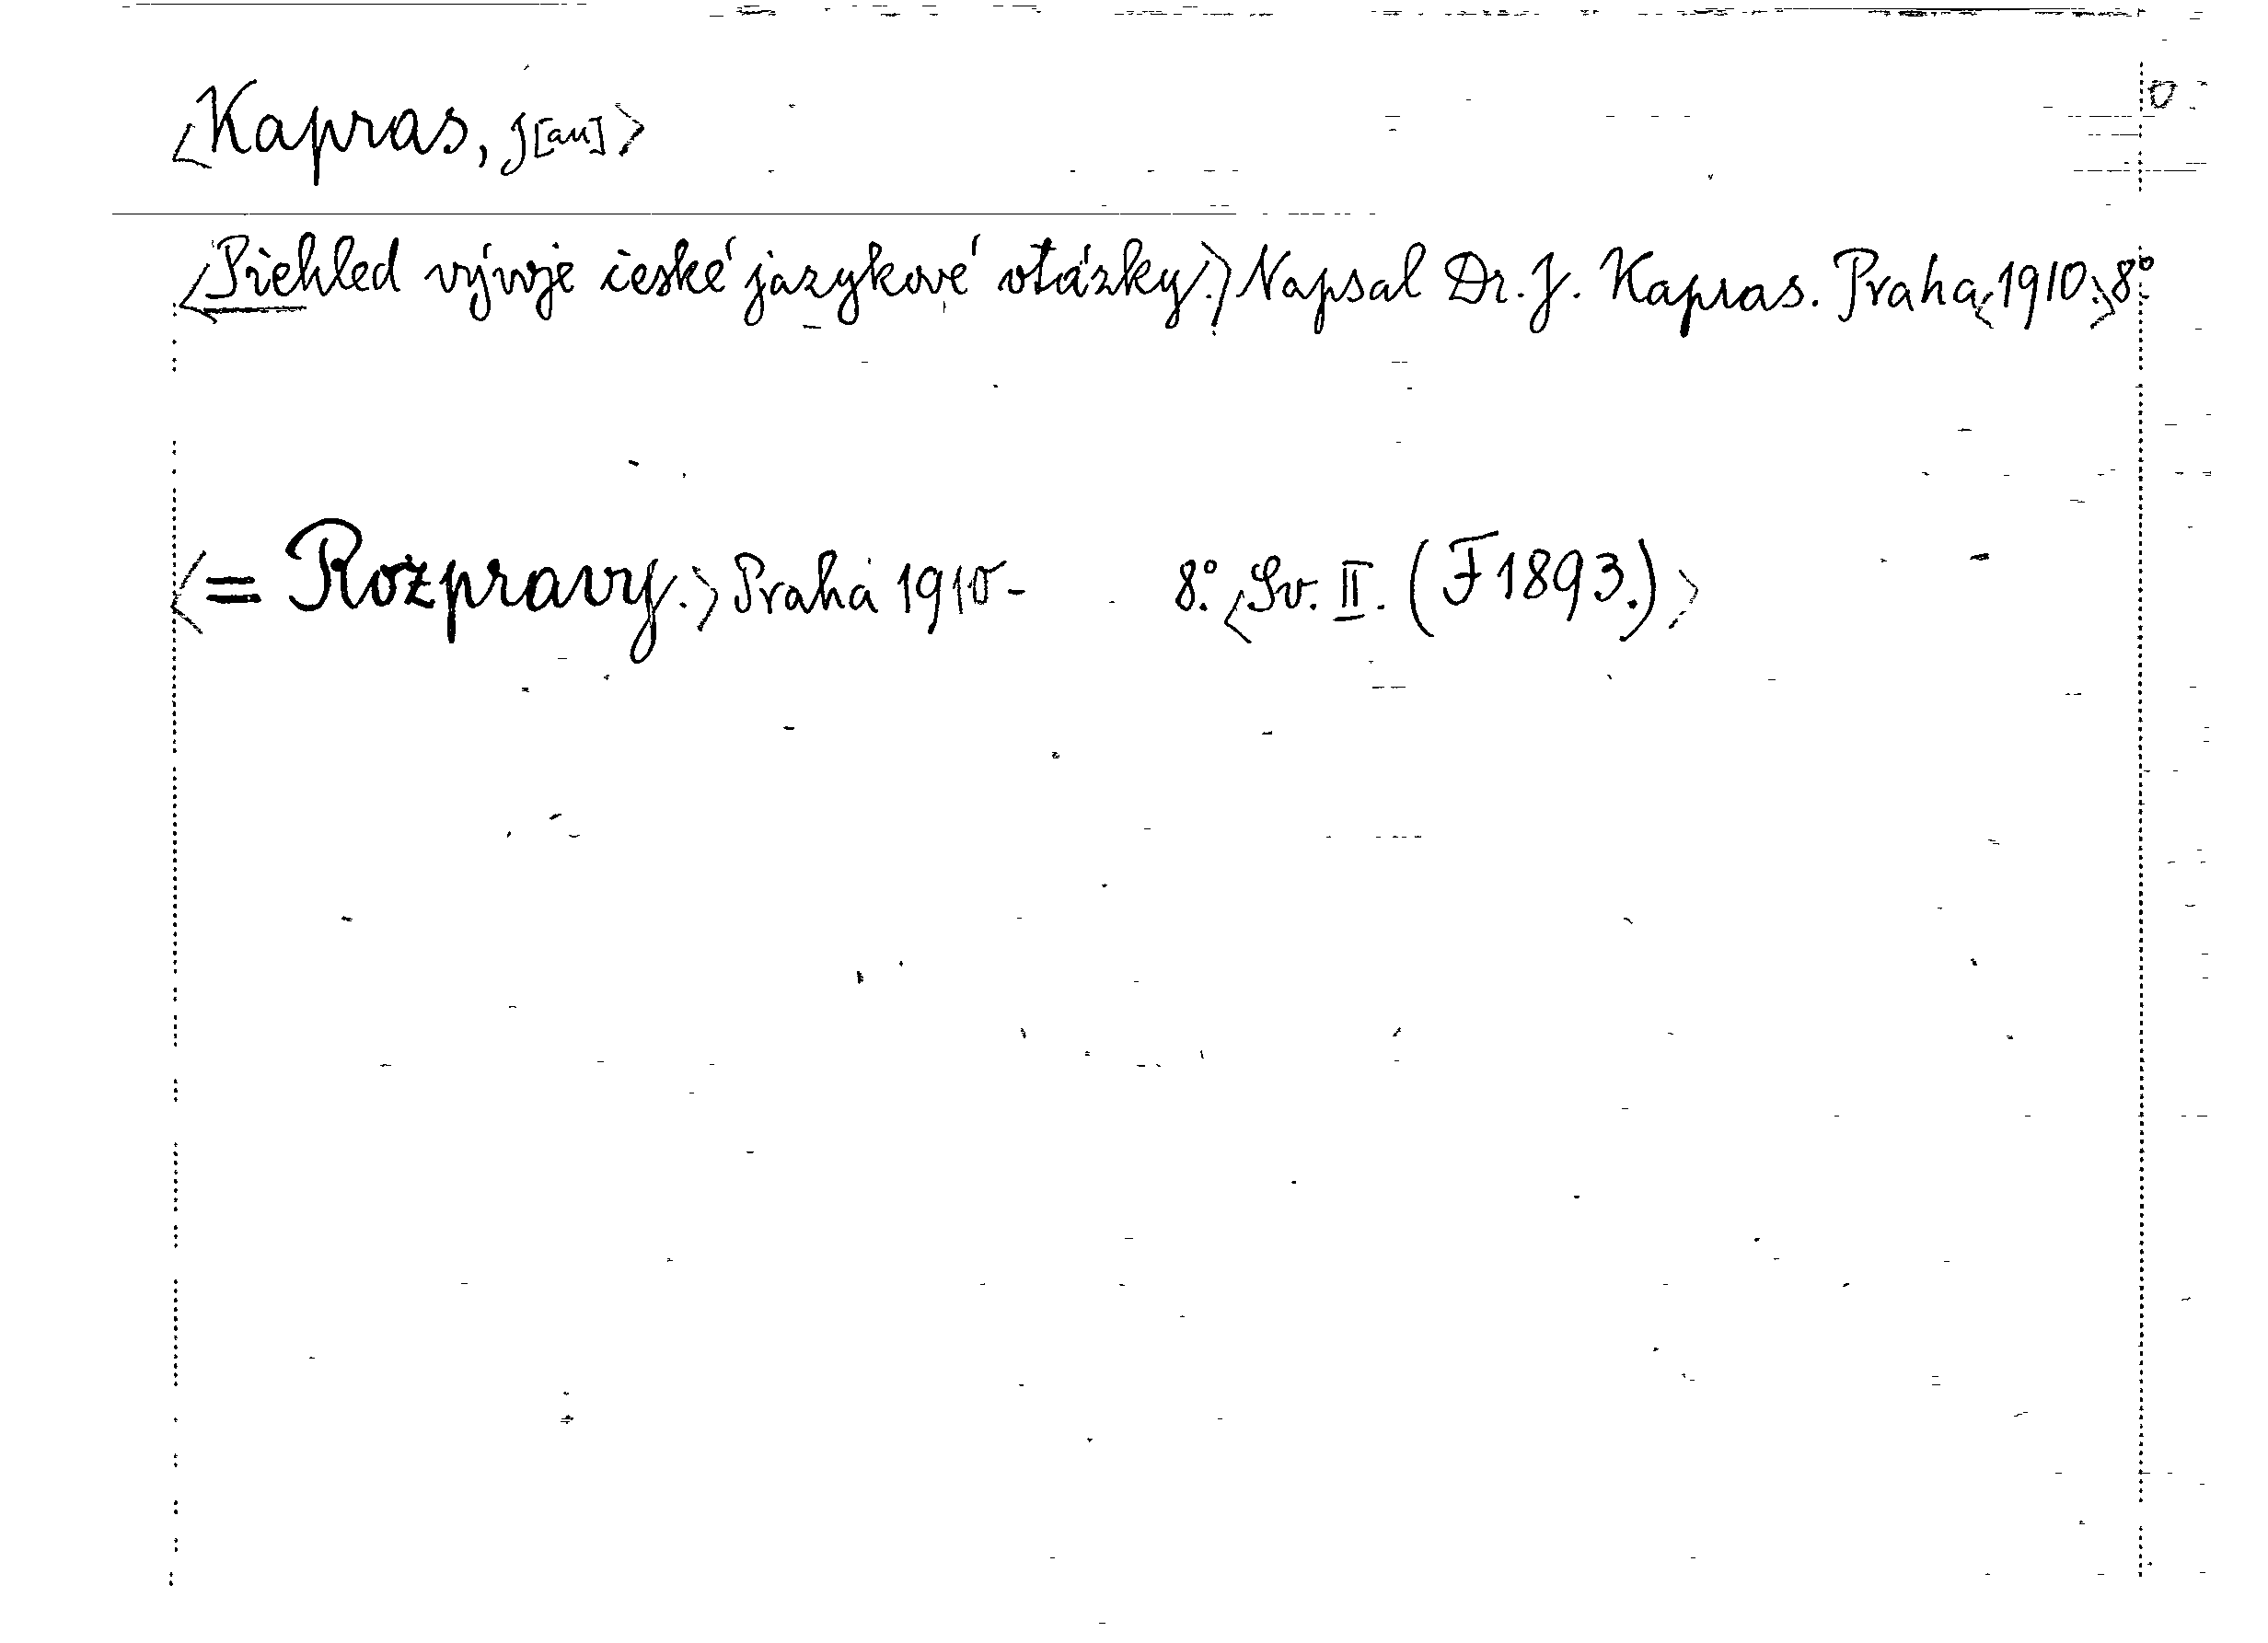 <Kapras, J[an]>
<Přehled vývoje české jazykové otázky.> Napsal Dr. J. Kapras. Praha <1910.> 8°
<= Rozpravy.> Praha 1910- 8°. <Sv. II. (F 1893.)>